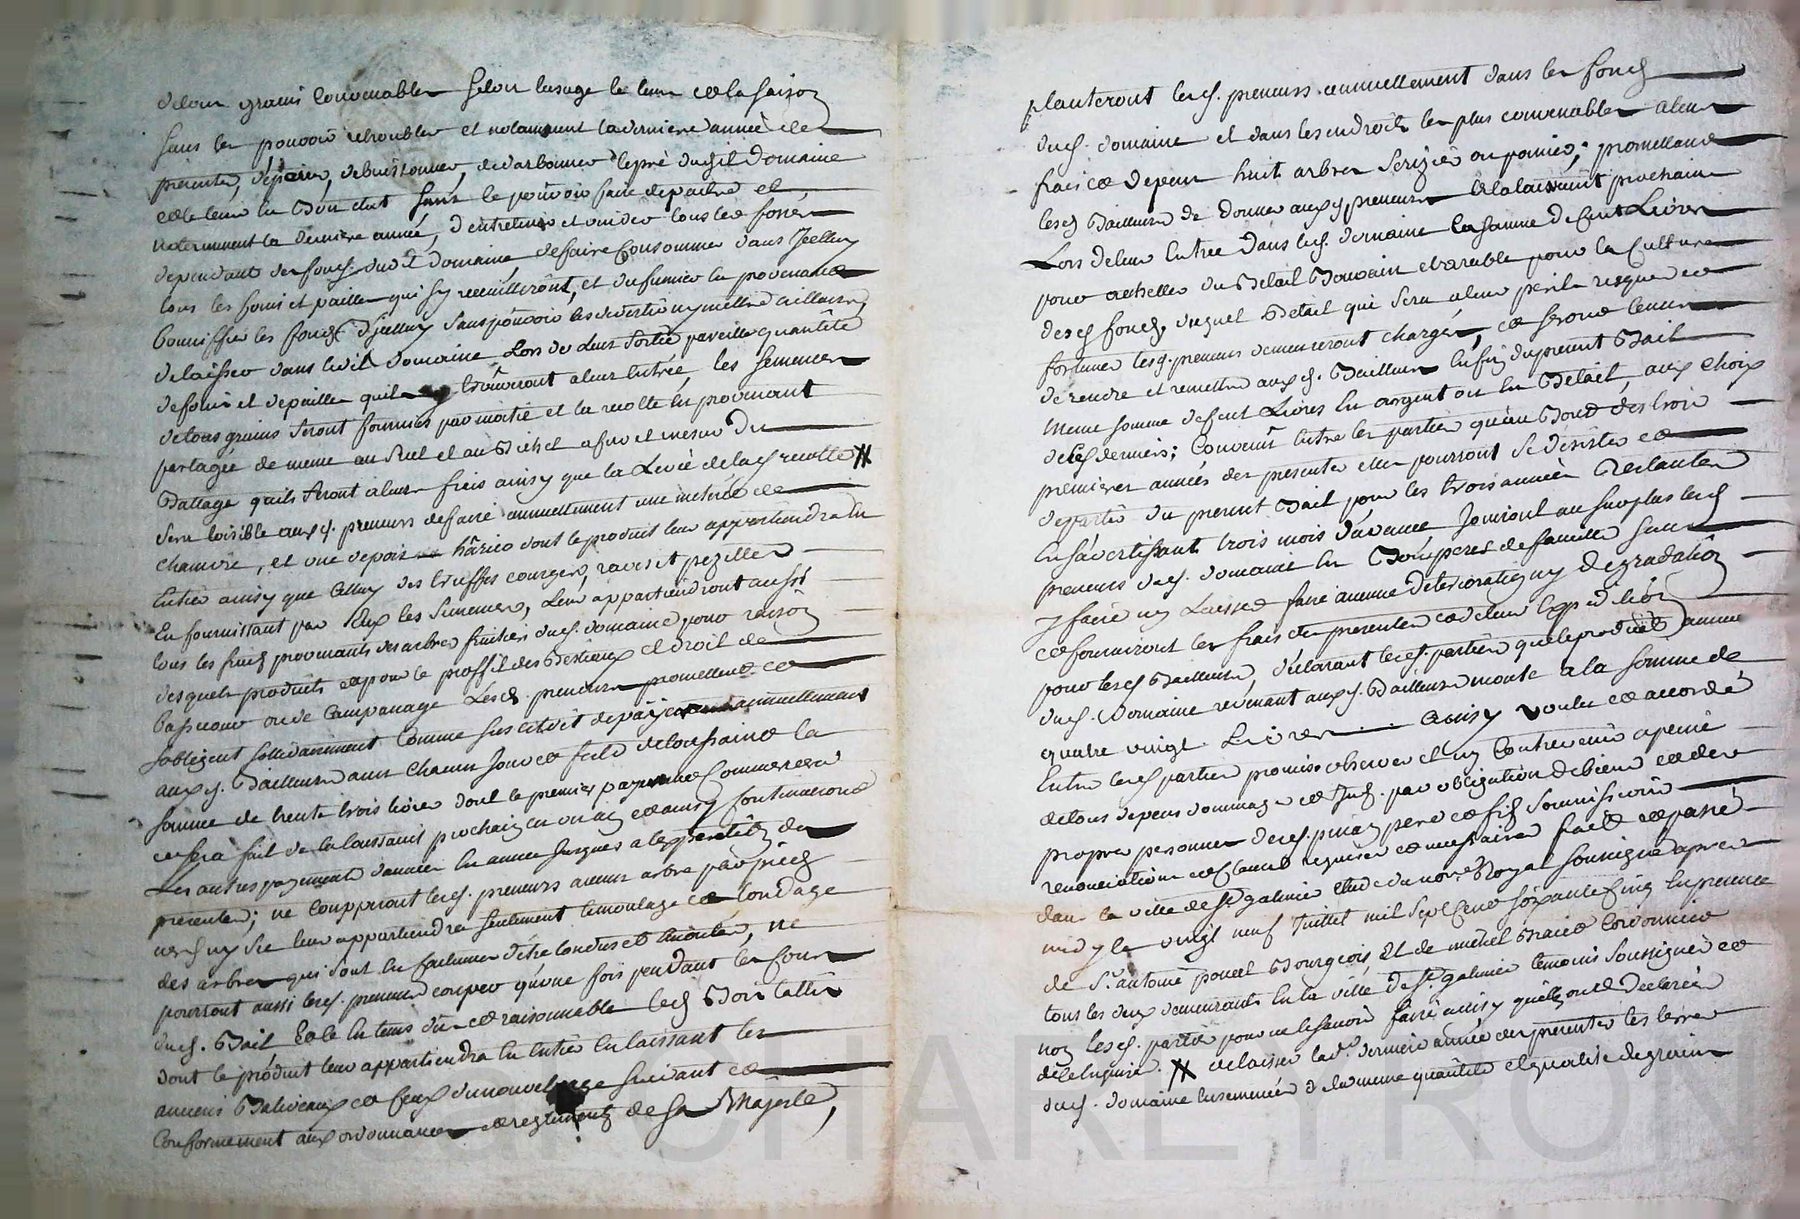 de leur grains convenables selon lusage le tems et la saison
sans les pouvoir retroubler et notamment la derniere année des
presentes, d'épierer, debuissonner, decarbonner le pré dudit domaine
et de le tenir en bon etat sans le pouvoir faire depaitre et
notemment la derniere année, d'entretenir et vuider tous les fossés
dependants des fonds dudt domaine de faire consommer dans Jcelluy
tous les foins et pailles qui sy recueilliront, et du fumier en provenant
bonniffier les fonds d'Jcelluy sans pouvoir les divertir ny mettre ailleurs,
de laisser dans ledit domaine Lors de leur sortie pareille quantité
de foin et de paille quils trouveront a leur entrée, les semences
de tous grains seront fournies par moitié et la recolte en provenant
partagée de meme au suel et au bichet a fur et mesure du
Battage quils feront a leurs frais ainsy que la Levée de lad recolte #
sera loisible auxd. preneurs de faire annuellement une meterée de
chanvre, et une de pois harico dont le produit leur appartiendra en
entier ainsy que celluy des truffes courges, raves et pezilles
En fournissant par Eux les semences, Leur appartiendront aussi
tous les fruits provenants des arbres fruitiers dud. domaine pour raison
desquels produits et pour le proffit des Bestiaux et droit de
basse cour ou de campanage Lesd. preneurs promettent et
sobligent solidairement comme sus est dit de payer annuellement
auxd. Bailleurs a un chacun jour et feste de toussaint la
somme de trente trois livres dont le premier payement commencera
et sera fait de la toussaint prochain en un an et ainsy continueront
Les autres payements d'année en année jusques a lexpiration des
presentes; ne coupperont lesd. preneurs aucun arbre par pied
verd ny sec leur appartiendra seulement lemoulage et tondage
des arbres qui sont en coutume d'etre tondus et émoulés, ne
pourront aussi lesd. preneurs couper qu'une fois pendant le cours
dud. Bail Et le en tems du et raisonnable lesd Bois taillis
dont le produit leur appartiendra en entier en laissant les
anciens Baliveaux et ceux du nouvel age suivant et
Conformement aux ordonnances et reglements de sa Majesté,
planteront lesd. preneurs annuellement dans les fonds
dud. domaine et dans les endroits les plus convenables a leurs
frais et depens huit arbres serizier ou pomier; promettant
lesd Bailleurs de donner auxd preneurs a la toussaint prochaine
Lors de leur Entrée dans led. domaine la somme de Cent Livres
pour achetter du Betail Bouvain et arable pour la culture
desd fonds duquel Betail qui sera a leur peril risque et
fortune lesd. preneurs demeureront chargés, et seront tenus
de rendre et remettre auxd. Bailleurs En fin du present Bail
meme somme de cent Livres En argent ou En Betail, aux choix
de ces derniers; Convenu Entre les parties qu'au Bout des trois
premieres années des presentes elles pourront se desister et
departir du present Bail pour les trois années Restantes
En s'avertissant trois mois d'avance jouiront au surplus lesd
preneurs dud. domaine En Bons peres de famille sans
y faire ny Laisser faire aucune deterioration ny degradation
et fourniront les frais des presentes et d'une Expedition
pour lesd Bailleurs, déclarant lesd. parties que le produit annuel
dud. Domaine revenant auxd. Bailleurs monte a la somme de
quatre vingt Livres ..... ainsy voulu et accordé
Entre lesd parties promis observer et ny Contrevenir a peine
de tous depens dommages et Jnts. par obligation de biens et des
propres personnes desd. pere et fils soumissions
renonciations et clauses requises et necessaires fait et passé
dans la ville de St galmier etude du nore Royal soussigné apres
midy le vingt neuf Juillet mil sept Cent soixante cinq En presence
de Sr antoine poncet Bourgeois Et de michel cordonnier
tous les deux demeurants En la ville de St. galmier temoins soussignés et
non lesd. parties pour ne le scavoir faire ainsy quelles ont declaré
de ce Enquises. # et laisser lad. derniere année des presentes les terres
dud. domaine Ensemencées de la meme quantité et qualité de grains